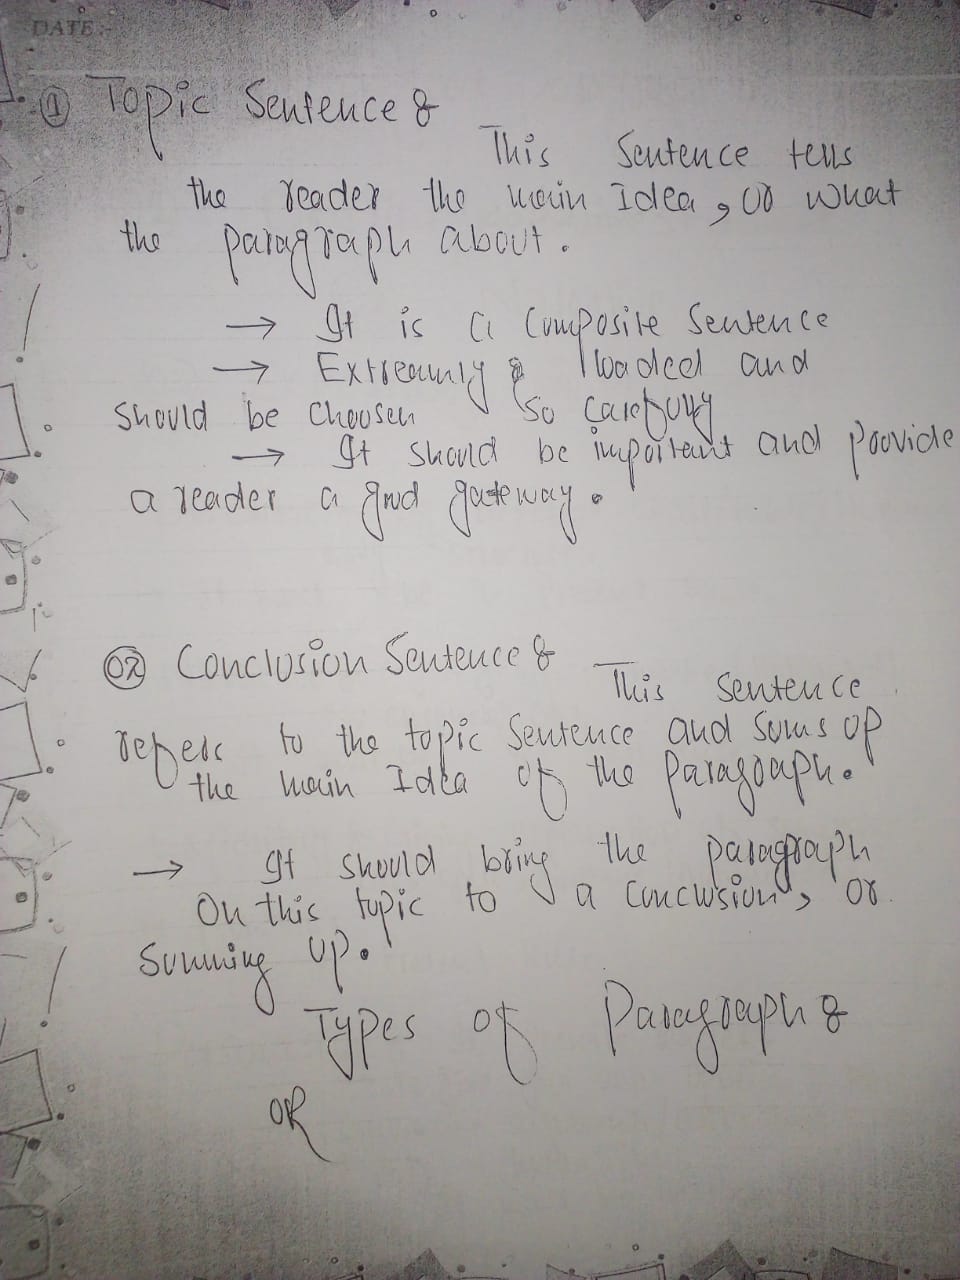 DATE:-
① Topic Sentence :
This Sentence tells
the reader the main Idea, or what
the paragraph about.
→ It is a Composite Sentence
→ Extreamly loaded and
should be choosen so carefully
→ It should be important and provide
a reader a good gateway.
02 Conclusion Sentence :
This Sentence
refers to the topic Sentence and sums up
the main Idea of the paragraph.
→ It should bring the paragraph
On this topic to a conclusion, or
summing up.
Types of Paragraph :
OR